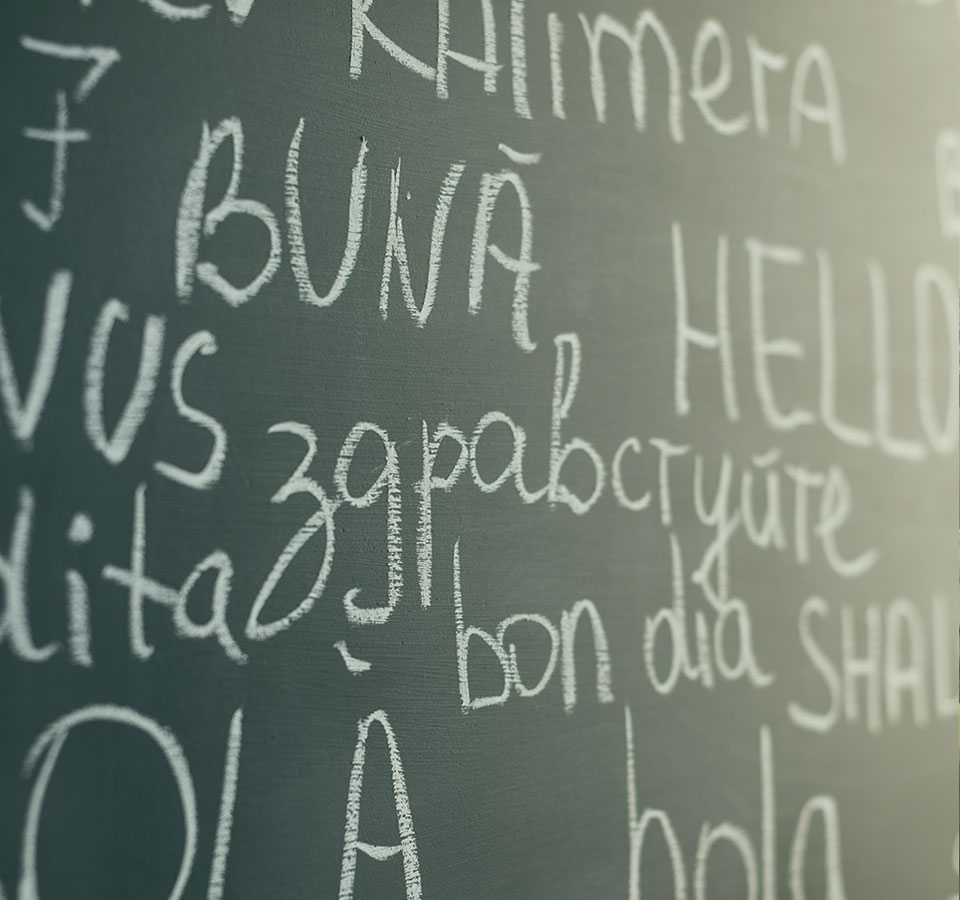 KAlimerA
BUNĂ
HELLO
здравствуйте
dita
bon dia
SHAL
OLÀ
hola